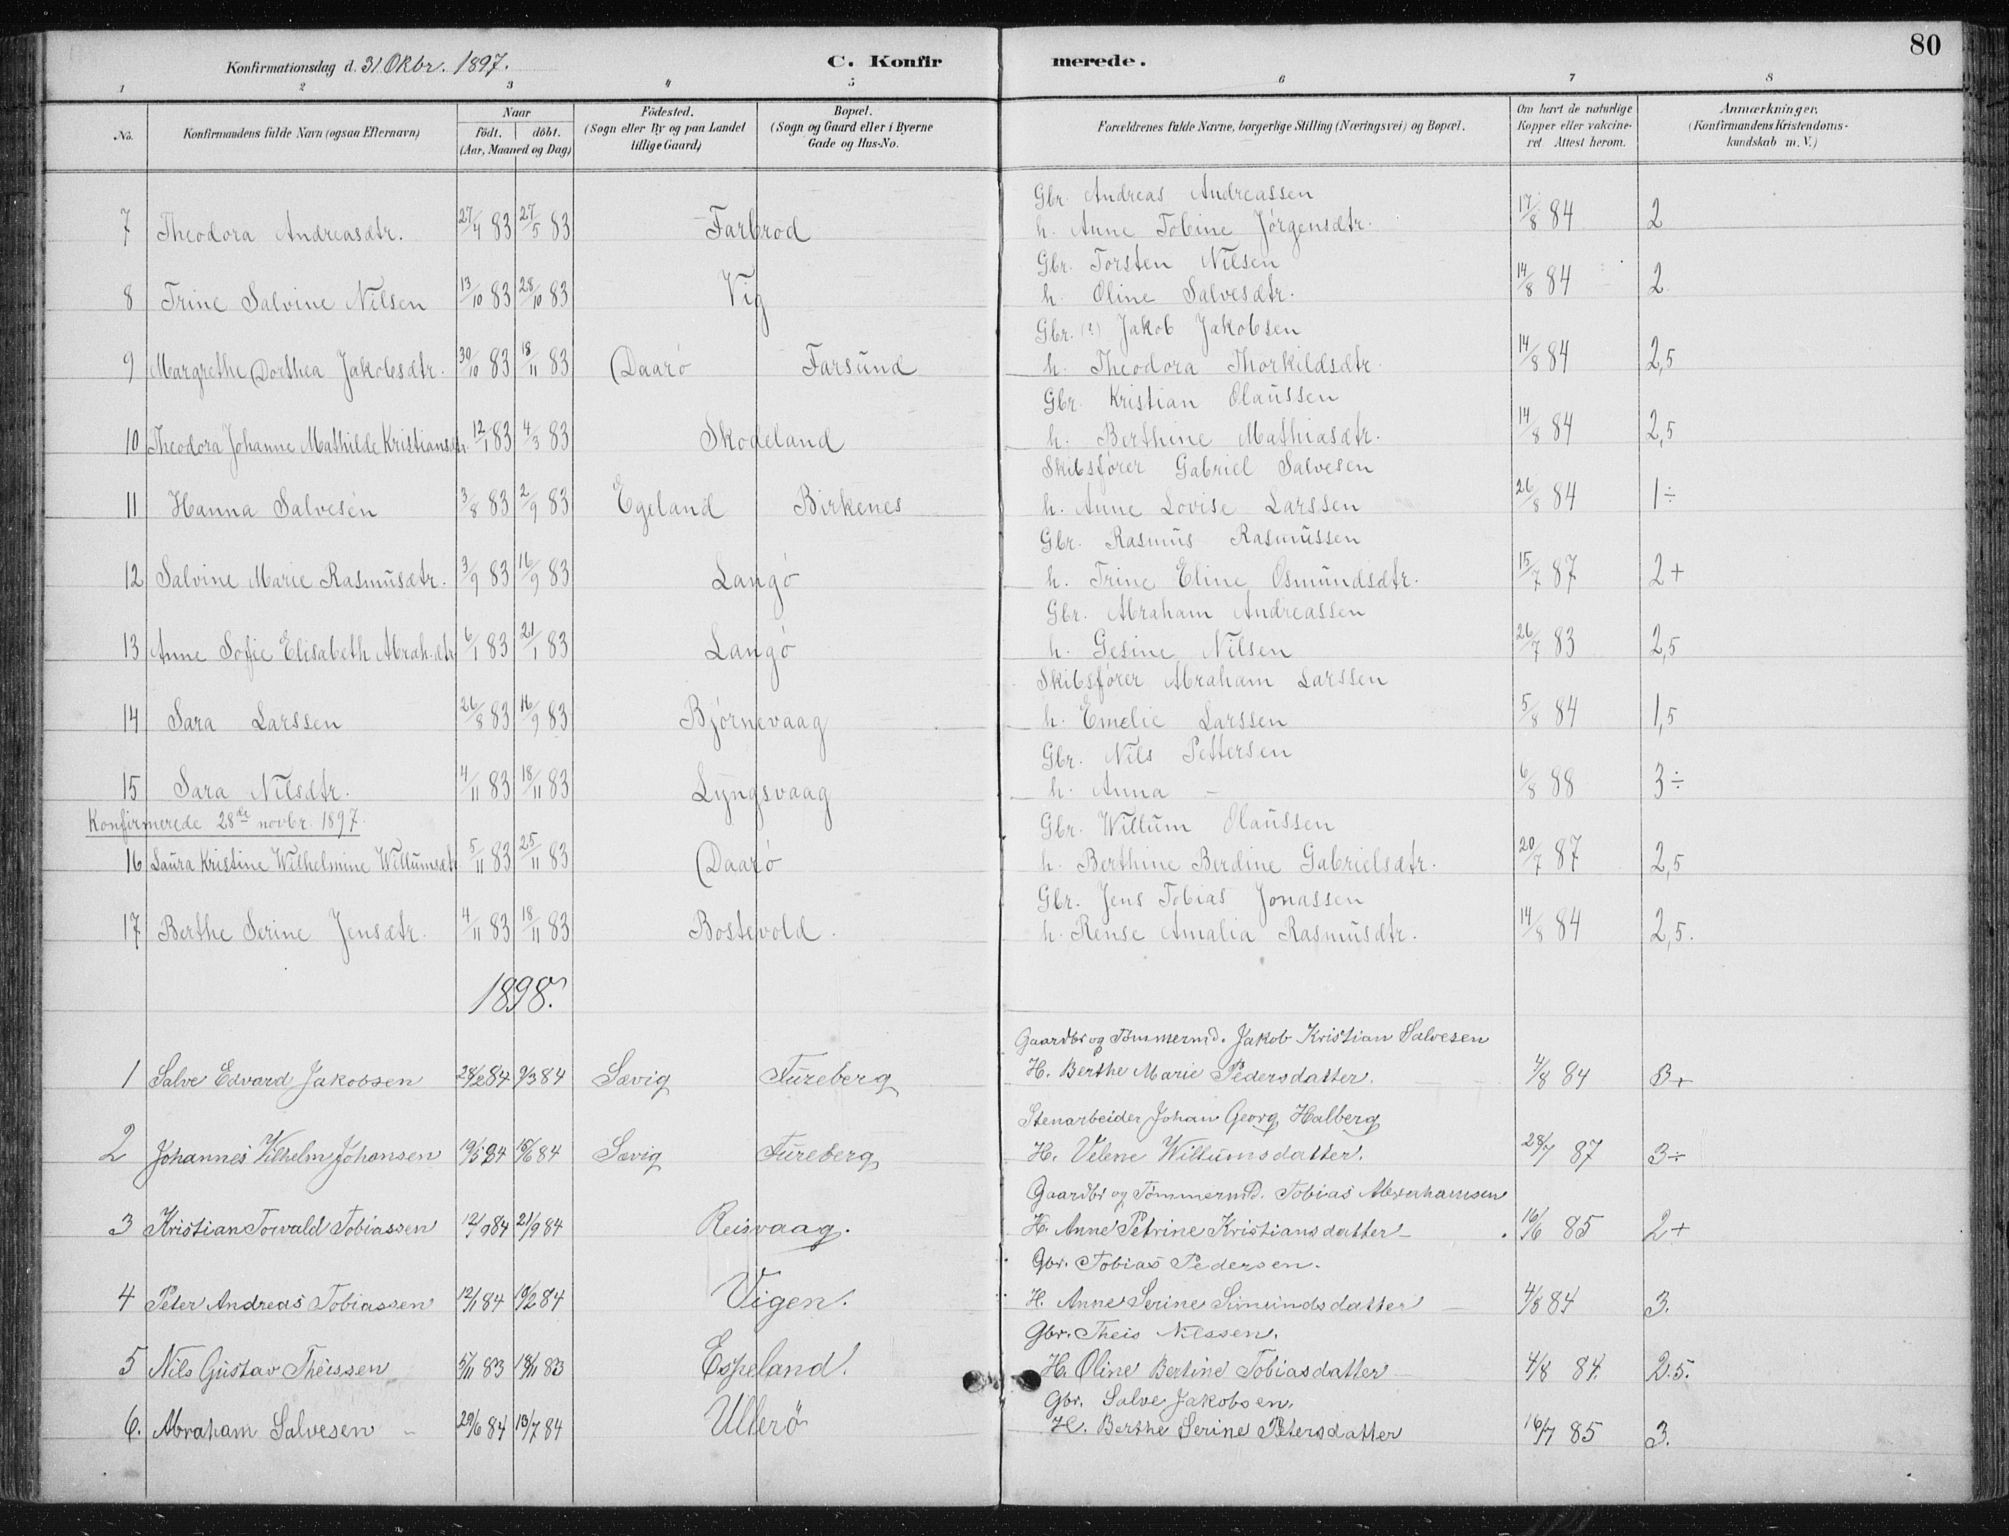 80
Konfirmationsdag d. 31 Okbr. 1897.
C. Konfirmerede.
1 2 3 4 5 6 7 8
No.
Konfirmandens fulde Navn (ogsaa Efternavn)
Naar
födt. döbt.
(Aar, Maaned og Dag)
Födested.
(Sogn eller By og paa Landet
tillige Gaard)
Bopæl.
(Sogn og Gaard eller i Byerne
Gade og Hus-No.
Forældrenes fulde Navne, borgerlige Stilling (Næringsvei) og Bopæl.
Om havt de naturlige
Kopper eller vakcine-
ret Attest herom.
Anmærkninger.
(Konfirmandens Kristendoms-
kundskab m. V.)
Gbr. Andreas Andreassen
7 Theodora Andreasdtr. 27/4 83 27/5 83 Farbrod h. Anne Tobine Jörgensdtr. 17/8 84 2
Gbr. Torsten Nilsen
8 Trine Salvine Nilsen 13/10 83 28/10 83 Vig h. Oline Salvesdtr. 14/8 84 2
Gbr. (?) Jakob Jakobsen
9 Margrethe Dorthea Jakobsdtr. 30/10 83 18/11 83 Daarö Farsund h. Theodora Thorkildsdtr. 14/8 84 2,5
Gbr. Kristian Olaussen
10 Theodora Johanne Mathilde Kristiansdtr. 12/1 83 4/3 83 Skodeland h. Berthine Mathiasdtr. 14/8 84 2,5
Skibsförer Gabriel Salvesen
11 Hanna Salvesen 3/8 83 2/9 83 Egeland Birkenes h. Anne Lovise Larssen 26/8 84 1÷
Gbr. Rasmus Rasmussen
12 Salvine Marie Rasmusdtr. 3/9 83 16/9 83 Langö h. Trine Eline Osmundsdtr. 15/7 87 2+
Gbr. Abraham Andreassen
13 Anne Sofie Elisabeth Abrah.dtr 6/1 83 21/1 83 Langö h. Gesine Nilsen 26/7 83 2,5
Skibsförer Abraham Larssen
14 Sara Larssen 26/8 83 16/9 83 Björnevaag h. Emelie Larssen 5/8 84 1,5
Gbr. Nils Pettersen
15 Sara Nilsdtr. 4/11 83 18/11 83 Lyngsvaag h. Anna – 6/8 88 3÷
Konfirmerede 28de novbr. 1897.
Gbr. Willum Olaussen
16 Laura Kristine Wilhelmine Willumsdtr 5/11 83 25/11 83 Daarö h. Berthine Berdine Gabrielsdtr. 20/7 87 2,5
Gbr. Jens Tobias Jonassen
17 Berthe Serine Jensdtr. 4/11 83 18/11 83 Bostevold. h. Rense Amalia Rasmusdtr. 14/8 84 2,5.
1898.
Gaardbr og Tömmermd. Jakob Kristian Salvesen
1 Salve Edvard Jakobsen 28/2 84 9/3 84 Sævig Fureberg H. Berthe Marie Pedersdatter. 4/8 84 3+
Stenarbeider Johan Georg Halberg
2 Johannes Vilhelm Johansen 19/5 84 15/6 84 Sævig Fureberg H. Velene Willumsdatter. 28/7 87 3÷
Gaardbr og Tömmermd. Tobias Abrahamsen
3 Kristian Torvald Tobiassen 12/9 84 21/9 84 Reisvaag. H. Anne Petrine Kristiansdatter 16/6 85 2+
Gbr. Tobias Pedersen.
4 Peter Andreas Tobiassen 12/1 84 10/2 84 Vigen. H. Anne Serine Simundsdatter 4/8 84 3.
Gbr. Theis Nilssen.
5 Nils Gustav Theissen 5/11 83 18/11 83 Espeland. H. Oline Bertine Tobiasdatter 4/8 84. 2.5.
Gbr. Salve Jakobsen.
6. Abraham Salvesen 29/6 84 13/7 84 Ullerö H. Berthe Serine Petersdatter 16/7 85 3.